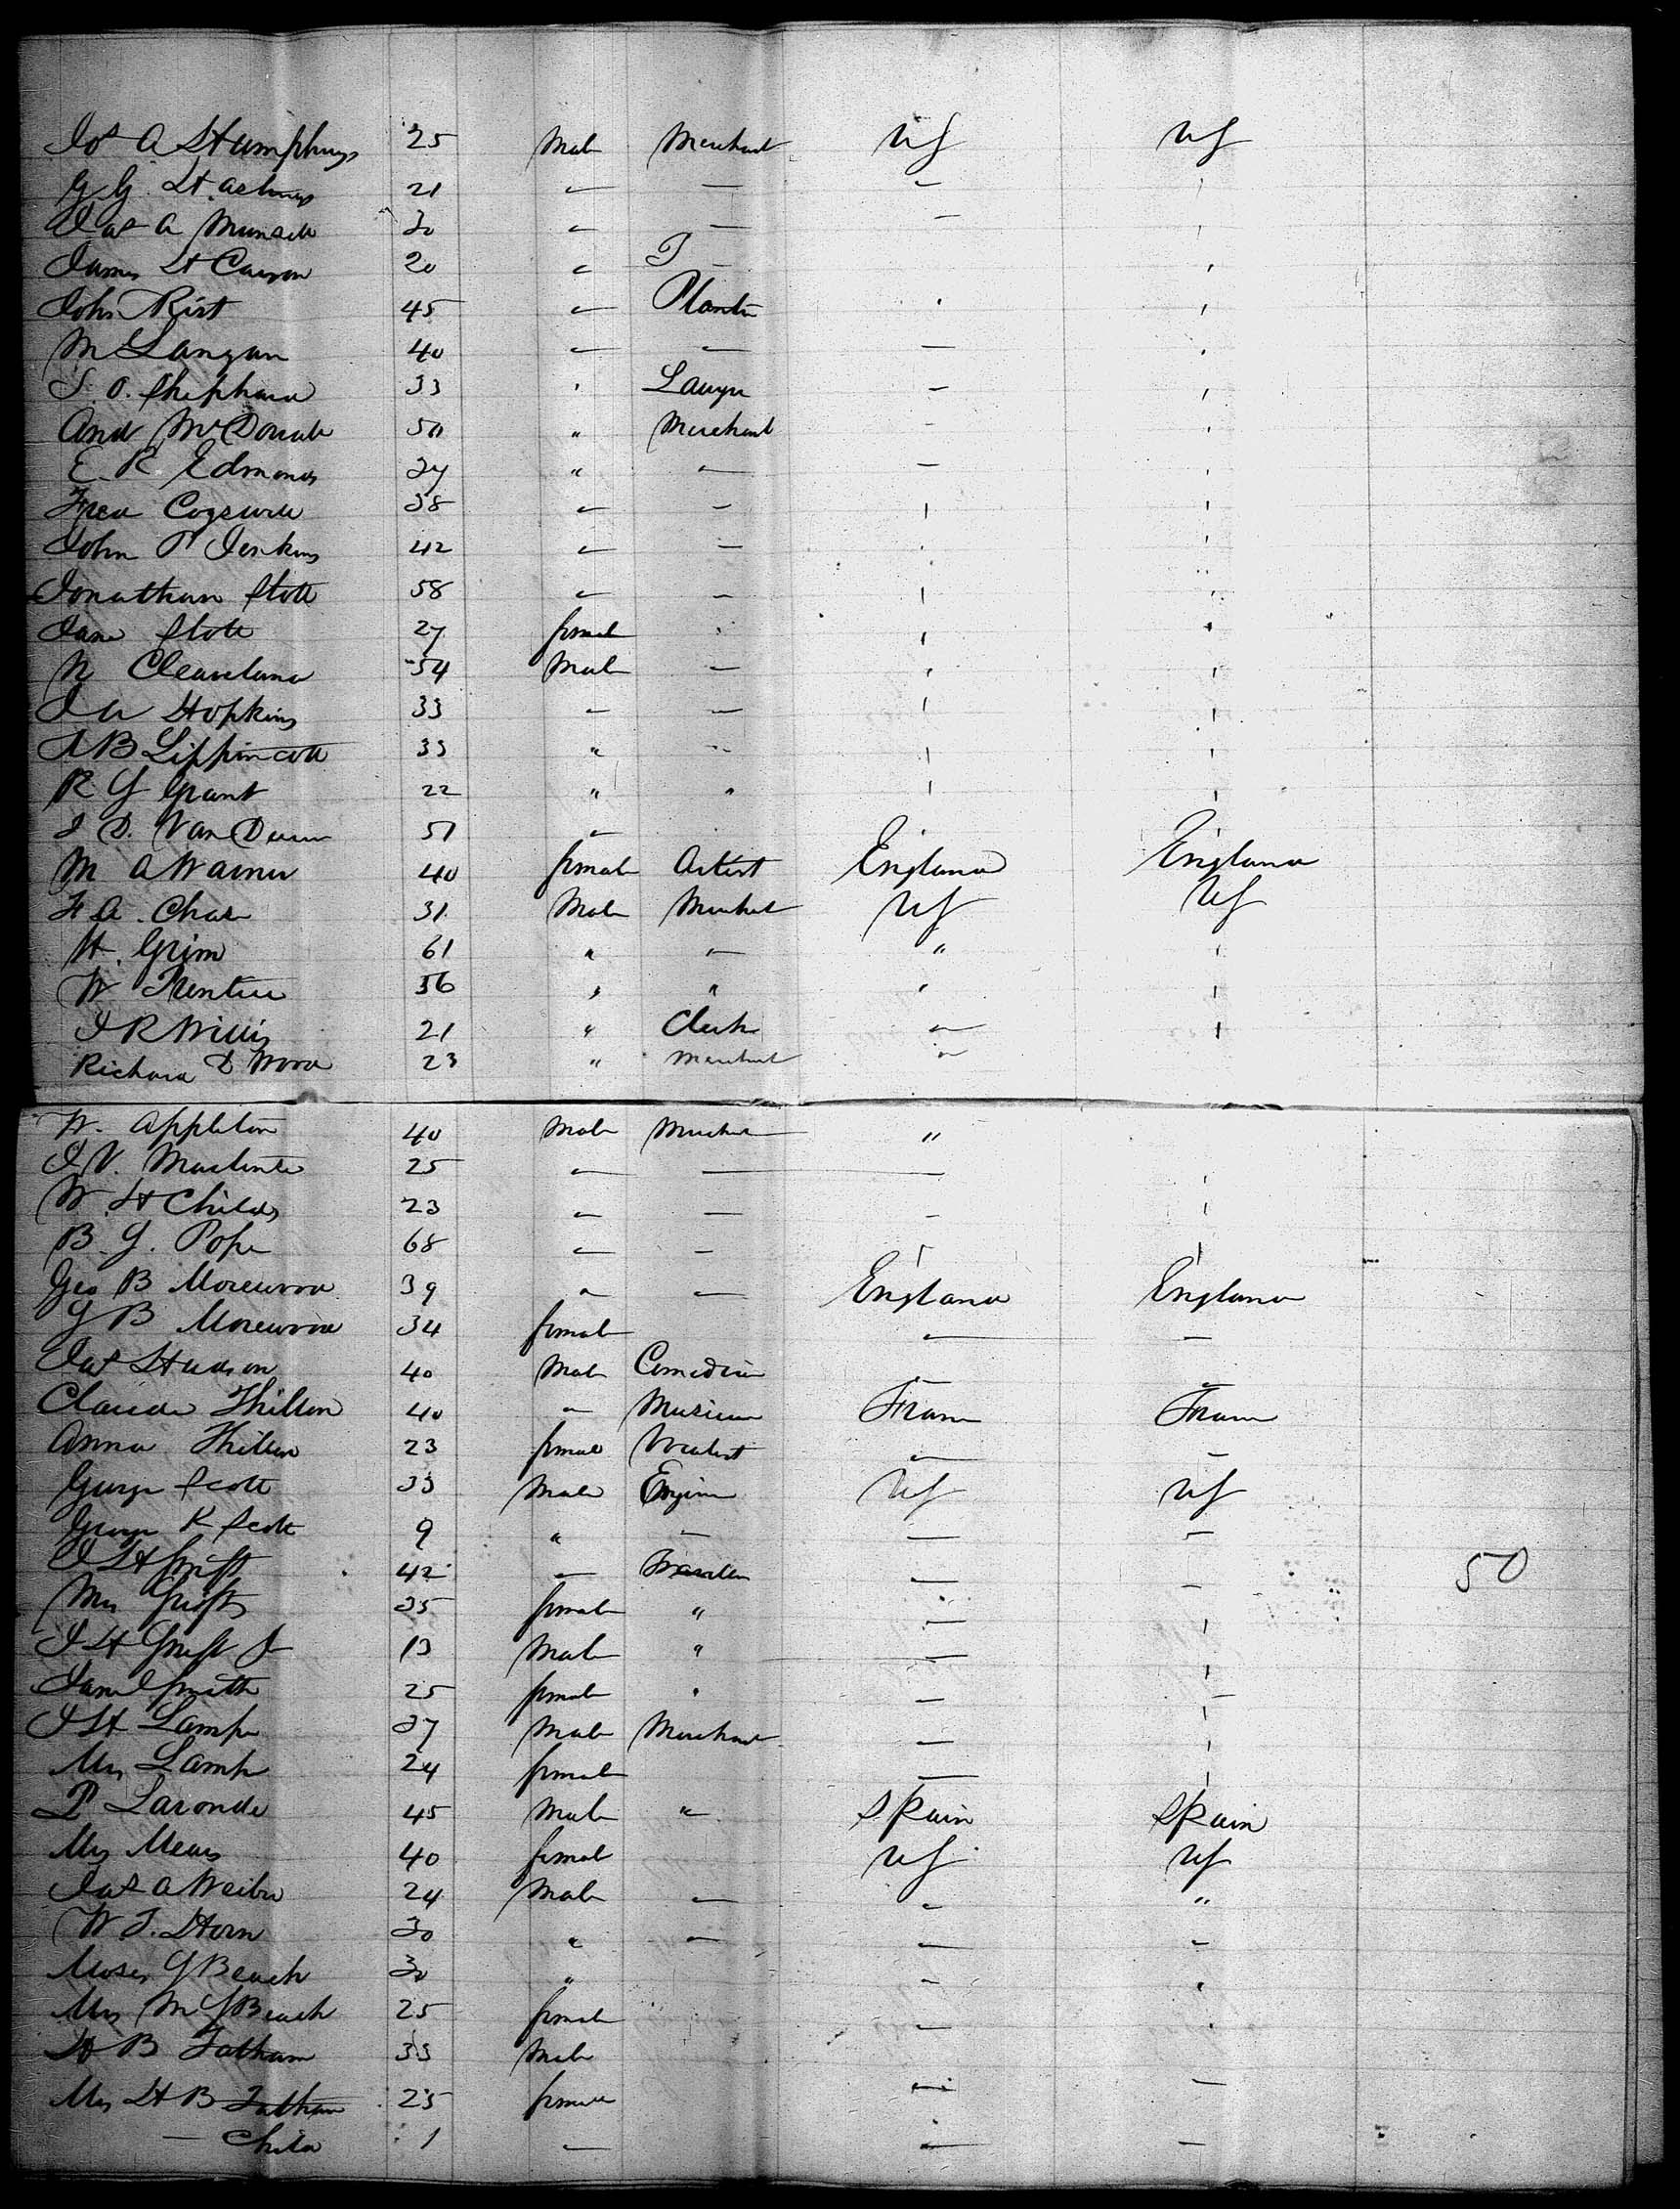 Jos A Humphreys 25 Male Merchant US US
G. G. Hastings 21 " — — "
Jas A Munsell 30 " — — "
James H Carson 20 " — "
John Rist 45 " Planter " "
M Langan 40 — — — "
S. O. Shephard 33 " Lawyer — "
And McDonald 50 " Merchant — "
E. R Edmonds 27 " — — "
Fred Cogswell 38 " — " "
John P Jenkins 42 " — " "
Jonathan Stott 58 " — " "
Jane Stott 27 female " "
N Cleaveland 54 Male — " "
J A Hopkins 33 — — " "
A B Lippincott 33 " — " "
R. G Grant 22 " " " "
J D. Van Duser 51 "
M A Warner 40 female Artist England England
F A. Chase 31 Male Merchant US US
H. Grim 61 " — " "
W Prentice 36 " " " "
J R Willis 21 " Clerk " "
Richard D Wood 23 " Merchant "
W. Appleton 40 Male Merchant "
J V. 25 — — —
W. H Childs 23 — — — "
B. G. Pope 68 — — " "
Geo B Morewood 39 " — England England
G B Morewood 34 female — —
Jas Hudson 40 Male Comedian — —
Claude Thillon 40 " Musician France France
Anna Thillon 23 female Vocalist — —
George Scott 33 Male Engineer US US
George K Scott 9 " — — —
J H Grift 42 — — — 50
Mrs Grift 35 female " — "
J H Grift Jr 13 Male " — "
Jane Smith 25 female " — —
J H Lamp 37 Male Merchant — "
Mrs Lamp 24 female — "
P Laronde 45 Male " Spain Spain
Mrs Mears 40 female US US
Jas A 24 Male — — "
W T. Horn 30 " — — —
Moses Y Beach 30 " — "
Mrs M Y Beach 25 female — "
H B Tatham 33 Male
Mrs H B Tatham 25 female — —
— Child 1 — — —